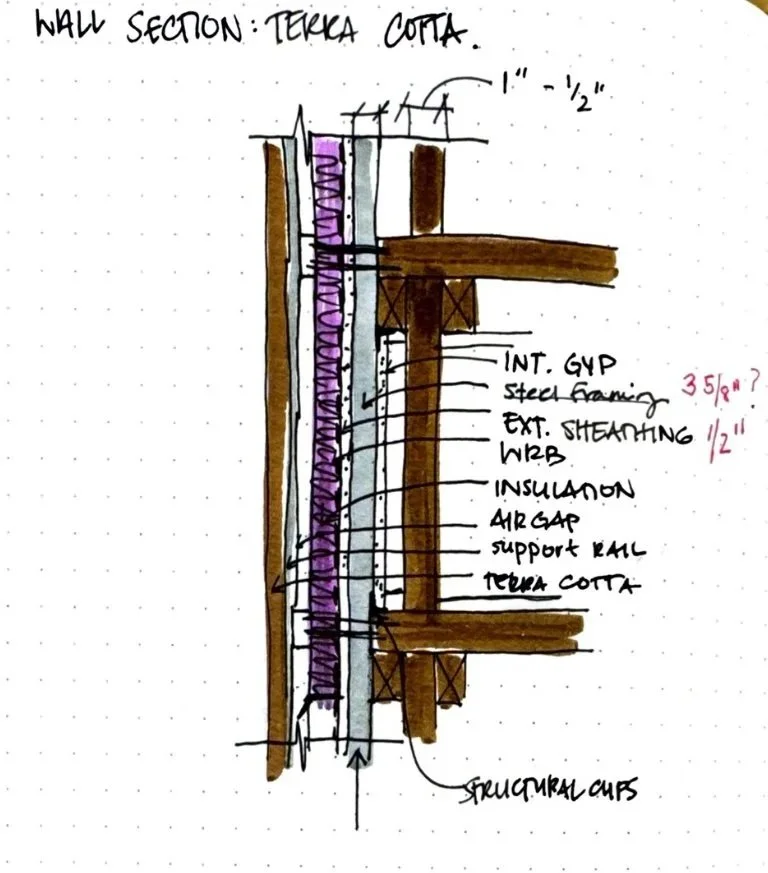 WALL SECTION: TERRA COTTA.
1" - 1/2"
INT. GYP
Steel Framing 3 5/8"?
EXT. SHEATHING 1/2"
WRB
INSULATION
AIR GAP
support RAIL
TERRA COTTA
STRUCTURAL CLIPS